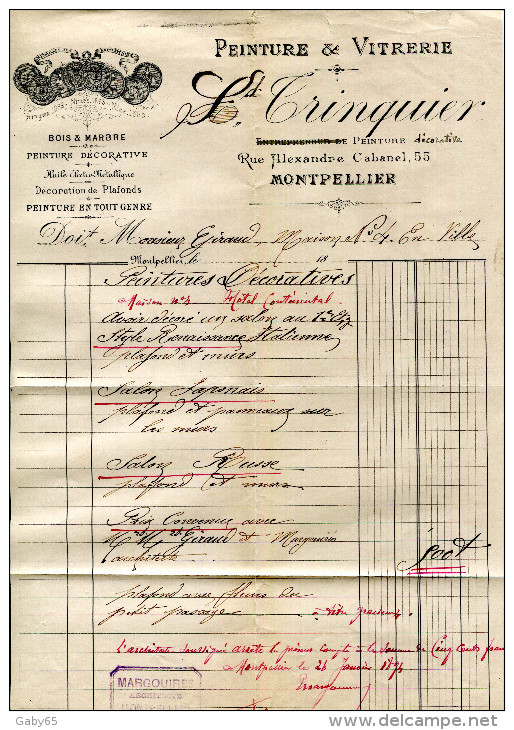 PEINTURE & VITRERIE
Ld. Trinquier
ENTREPRENEUR DE PEINTURE décorative
Rue Alexandre Cabanel, 55
MONTPELLIER
BOIS & MARBRE
PEINTURE DÉCORATIVE
Huile Electro-Métallique
Décoration de Plafonds
PEINTURE EN TOUT GENRE
Doit, Monsieur Giraud, Maison No 4. En Ville
Montpellier, le 18
Peintures Décoratives
Maison no 4 Hotel Continental
Avoir décoré un salon au 1er Etg
Style Renaissance Italienne
plafond et murs
Salon Japonais
plafond et panneaux sur
les murs
Salon Russe
plafond et murs
Prix Convenu avec
Mrs Giraud et Margouirès
architecte 500f
plafond avec fleurs du
petit passage
L'architecte soussigné arrête le présent compte à la somme de Cinq Cents francs
Montpellier le 26 Janvier 1894
MARGOUIRES
ARCHITECTE
MONTPELLIER
Gaby65
www.delcampe.net